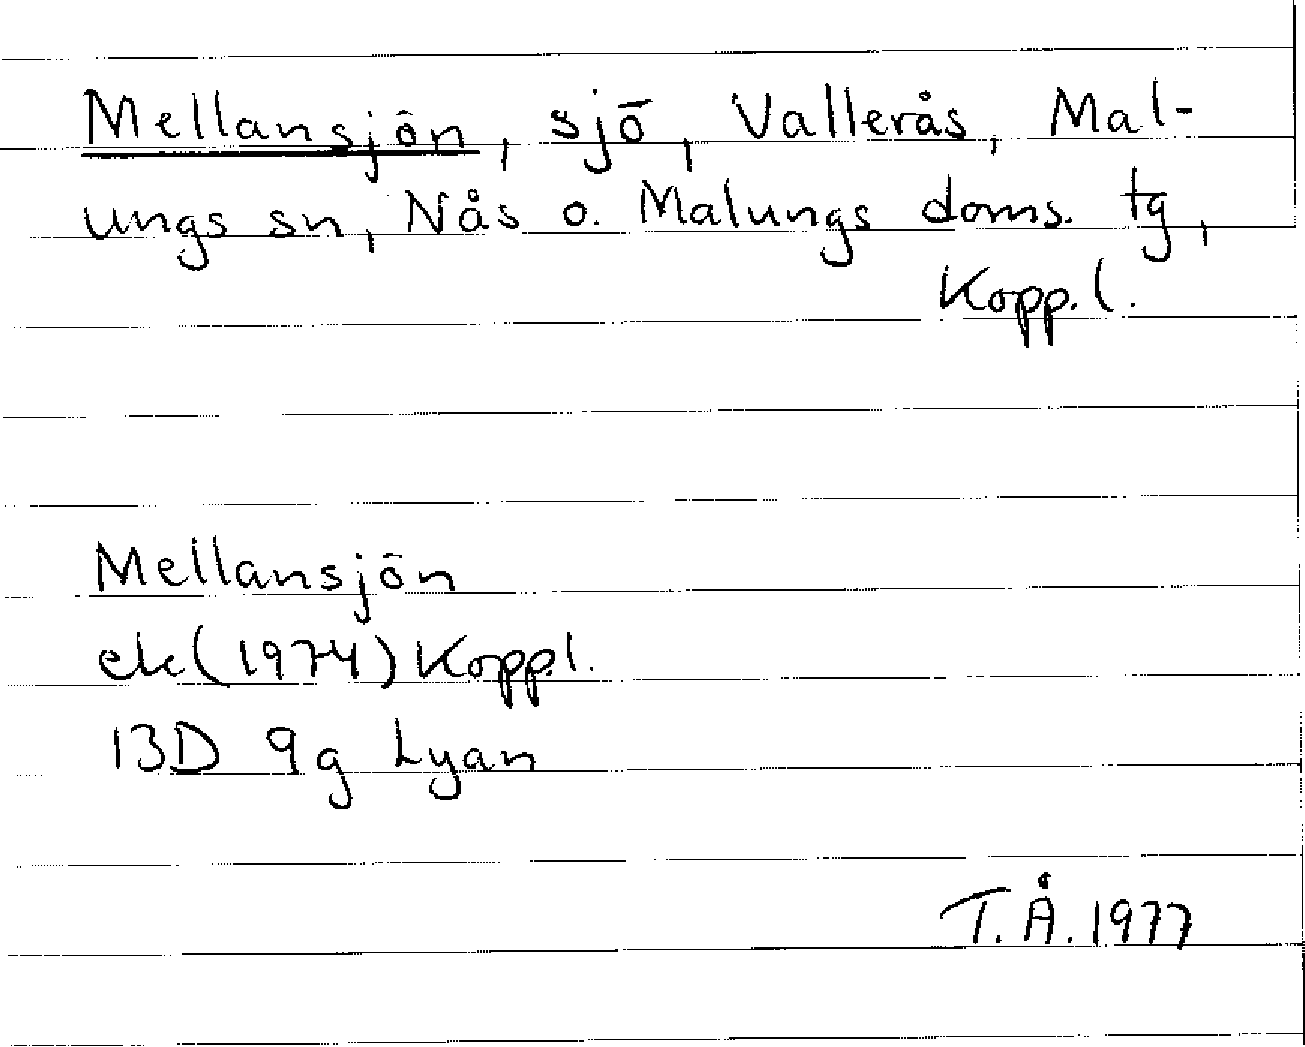 Mellansjön, sjö, Vallerås, Mal-
ungs sn, Nås o. Malungs doms. tg,
Kopp. l.
Mellansjön
ek (1974) Kopp.l.
13D 9g Lyan
T.Å. 1977